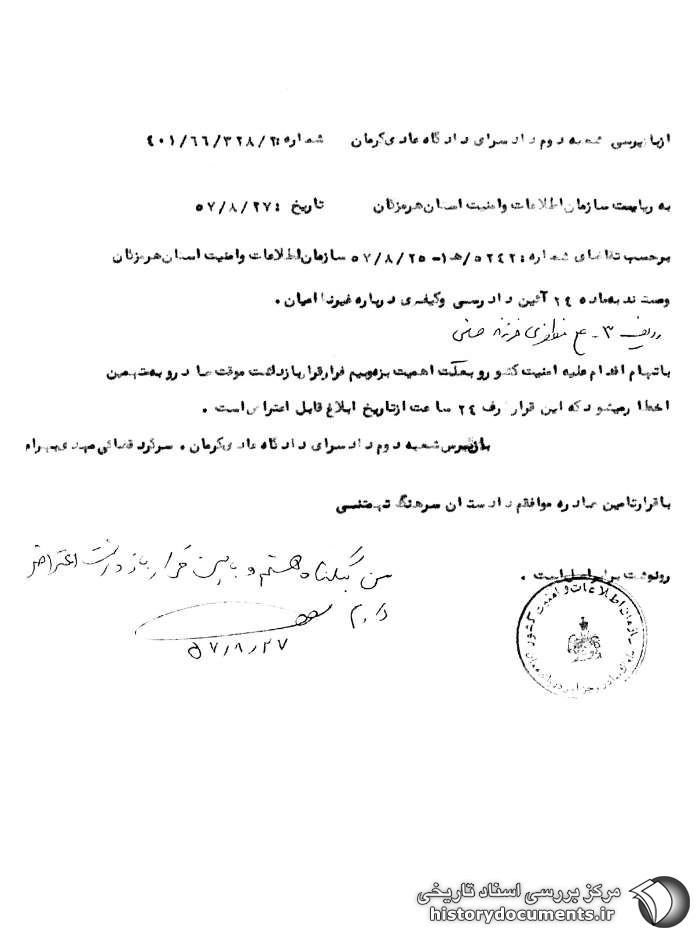 از بازپرسی شعبه دوم دادسرای دادگاه عادی کرمان شماره: ۴۰۱/۶۶/۳۲۸/۲
به ریاست سازمان اطلاعات و امنیت استان هرمزگان تاریخ: ۵۷/۸/۲۷
برحسب تقاضای شماره: ۵۲۴۲/ه‍ ۱- ۵۷/۸/۲۵ سازمان اطلاعات و امنیت استان هرمزگان
و مستند بماده ۲۴ آئین دادرسی و کیفری درباره غیرنظامیان.
ردیف ۳- فرزند
باتهام اقدام علیه امنیت کشور و بعلت اهمیت بزه بیم فرار قرار بازداشت موقت صادر و به متهمین
اخطار میشود که این قرار ظرف ۲۴ ساعت از تاریخ ابلاغ قابل اعتراض است.
بازپرس شعبه دوم دادسرای دادگاه عادی کرمان. سرگرد قضائی مهدی بهرام
با قرار تامین صادره موافقم دادستان سرهنگ تهمتنی
من بیگناه هستم و با این قرار بازداشت اعتراض
دارم
۵۷/۸/۲۷
رونوشت برابر اصل است.
سازمان اطلاعات و امنیت کشور
مرکز بررسی اسناد تاریخی
historydocuments.ir